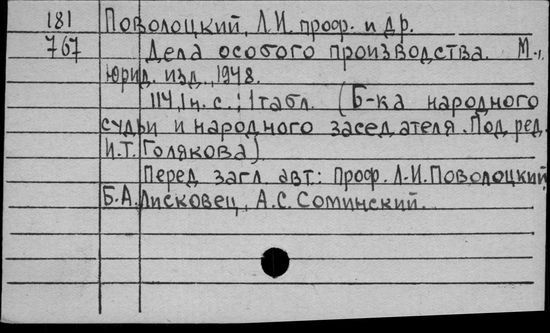 181 Поволоцкий, Л.И. проф. и др.
767 Дела особого производства. М.,
юрид. изд., 1948.
114, 1 н. с.; 1 табл. (Б-ка народного
судьи и народного заседателя. Под ред.
И.Т. Голякова)
Перед загл. авт.: Проф. Л.И. Поволоцкий,
Б.А. Лисковец, А.С. Соминский.